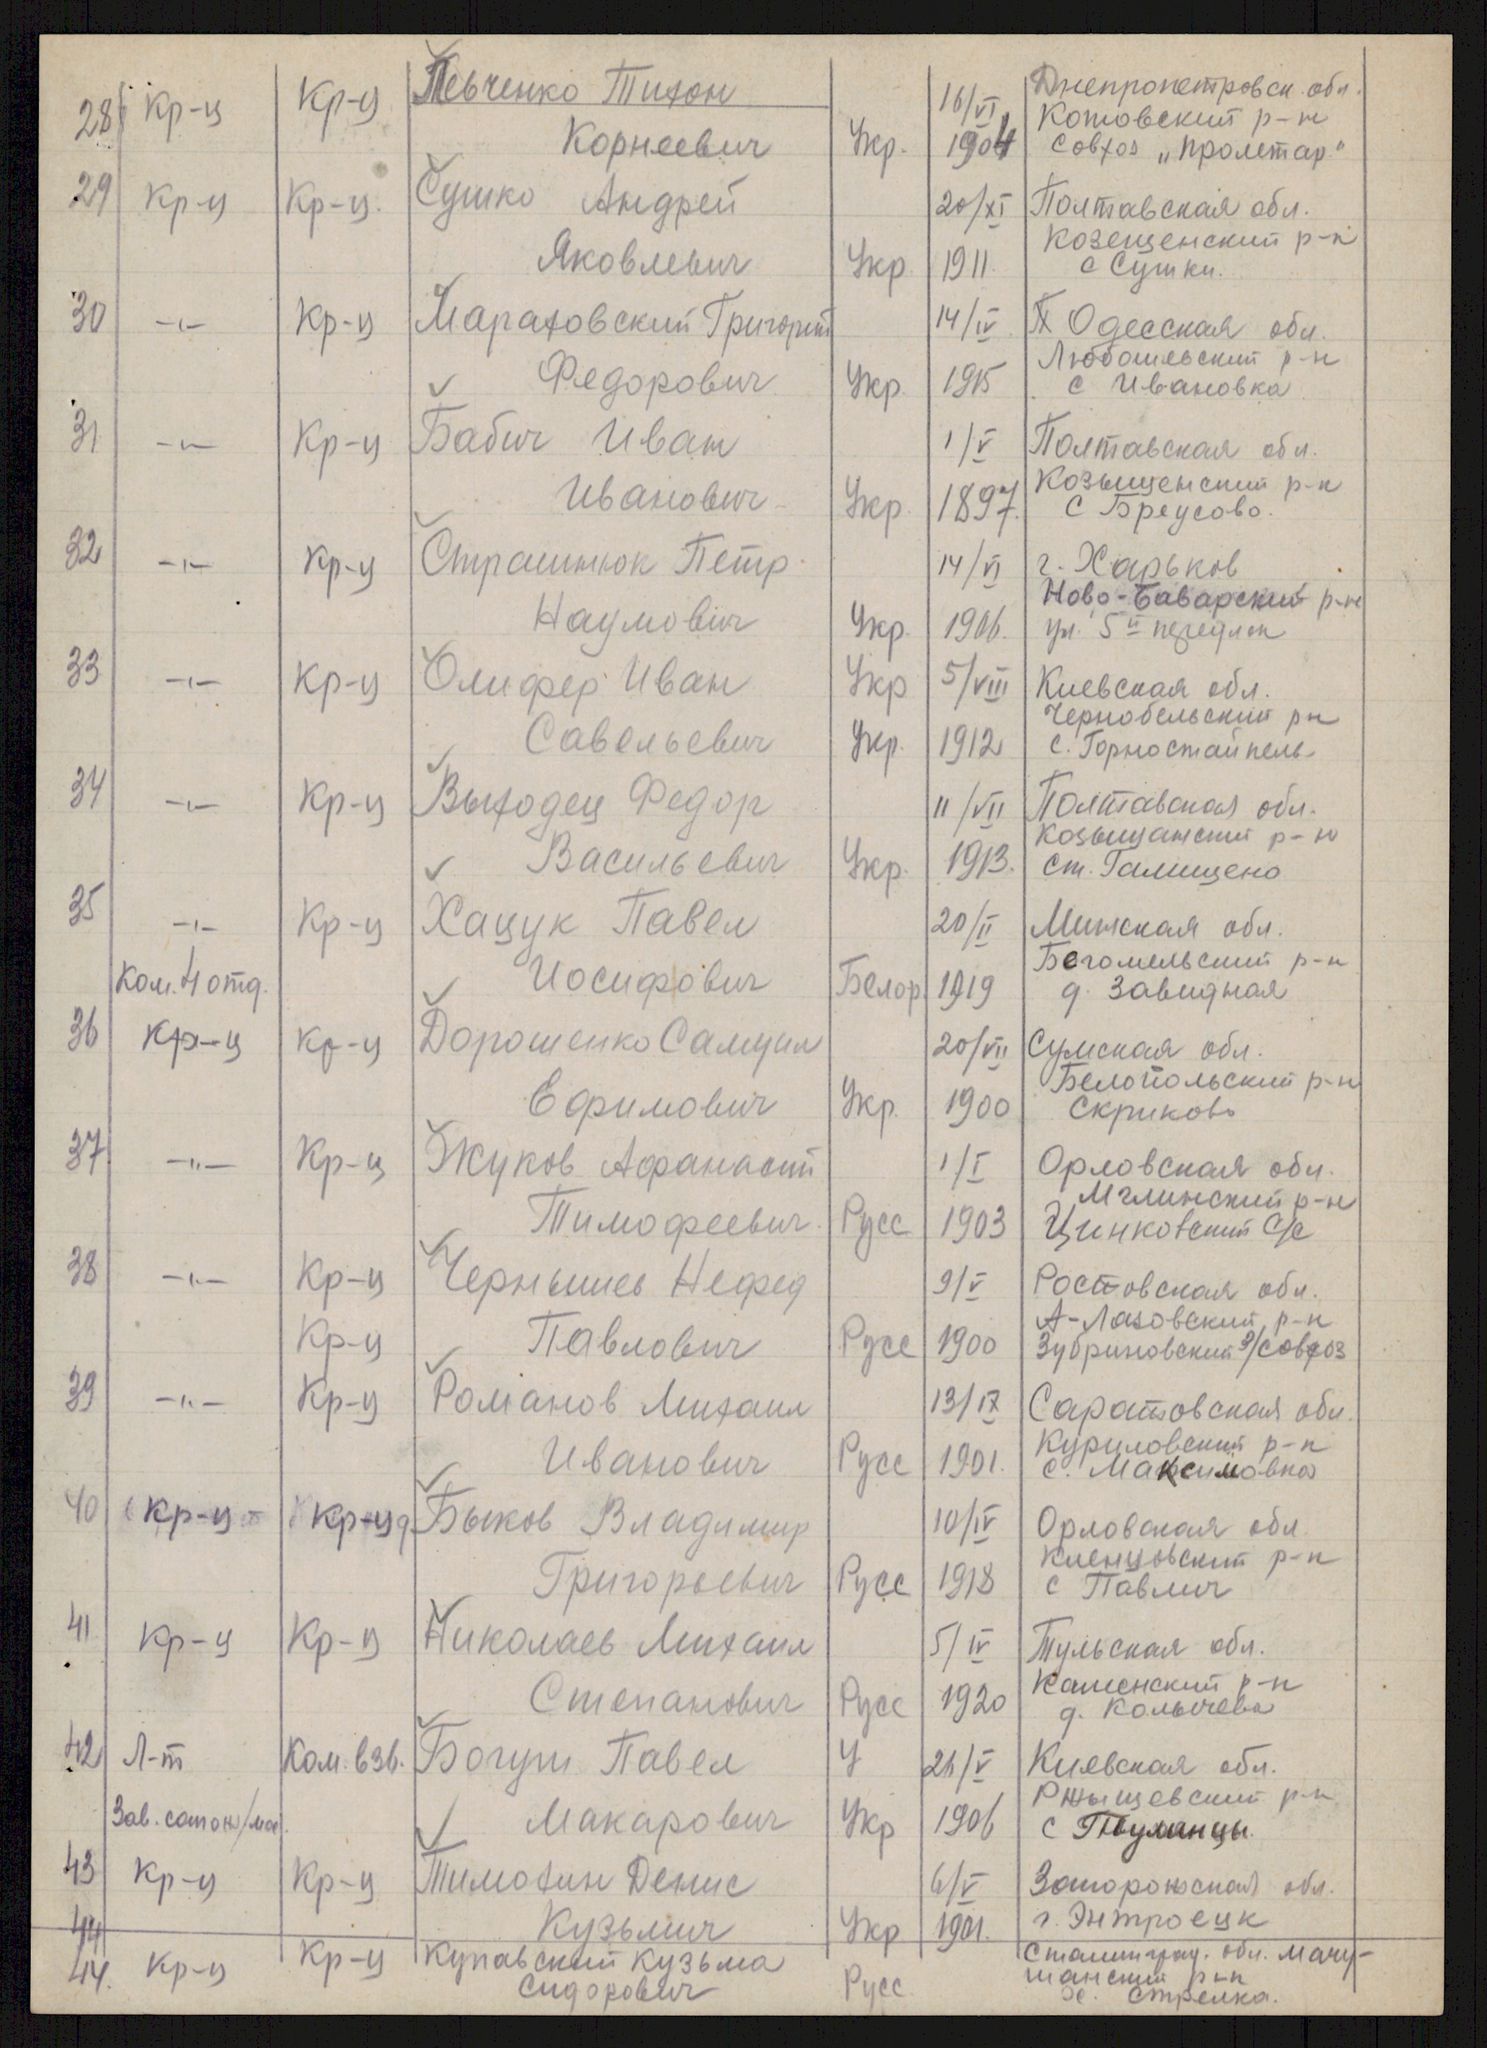 28 Кр-ц Кр-ц Певченко Тихон 16/VI Днепропетровск. обл.
Котовский р-н
Корнеевич Укр. 1904 Совхоз „Пролетар"
29 Кр-ц Кр-ц. Сушко Андрей 20/XI Полтавская обл.
Козещенский р-н
Яковлевич Укр. 1911. с Сушки.
30 -"- Кр-ц Мараховский Григорий 14/IV Одесская обл.
Любашевский р-н
Федорович Укр. 1915 с Ивановка
31 -"- Кр-ц Бабич Иван 1/V Полтавская обл.
Козыщенский р-н
Иванович Укр. 1897. С Бреусово.
32 -"- Кр-ц Страшнюк Петр 14/VI г. Харьков
Ново-Баварский р-н
Наумович Укр. 1906. ул. 5й
33 -"- Кр-ц Олифер Иван Укр 5/VIII Киевская обл.
Чернобельский рн
Савельевич Укр. 1912 с. Горностайпель
34 -"- Кр-ц Выходец Федор 11/VII Полтавская обл.
Козыщанский р-н
Васильевич Укр. 1913. ст. Галищено
35 -"- Кр-ц Хацук Павел 20/II Минская обл.
Бегомельский р-н
Ком. отд. Иосифович Белор 1919 д. Завидная
36 Кр-ц Кр-ц Дорошенко Самуил 20/VII Сумская обл.
Белопольский р-н
Ефимович Укр. 1900 Скриково
37 -"- Кр-ц Жуков Афанасий 1/I Орловская обл.
Мглинский р-н
Тимофеевич Русс 1903 Цинковский С/с
38 -"- Кр-ц Чернышев Нефед 9/V Ростовская обл.
А-Лазовский р-н
Кр-ц Павлович Русс 1900 Зубриновский З/совхоз
39 -"- Кр-ц Романов Михаил 13/IX Саратовская обл.
Куриловский р-н
Иванович Русс 1901. с. Максимовка
40 Кр-ц Кр-ц Быков Владимир 10/IV Орловская обл
Клецовский р-н
Григорьевич Русс 1918 с Павлич
41 Кр-ц Кр-ц Николаев Михаил 5/IV Тульская обл.
Каменский р-н
Степанович Русс 1920 д. Колычева
42 Л-т Ком. взв. Богуш Павел У 21/V Киевская обл.
Ржыщевский р-н
Зав. Макарович Укр 1906 с
43 Кр-ц Кр-ц Тимохин Денис 6/V Запорожская обл.
Кузьмич Укр 1901. г.
44
44. Кр-ц Кр-ц Купавский Кузьма Сталинград. обл. Мачу-
шанский р-н
Сидорович Русс. х. Стрелка.